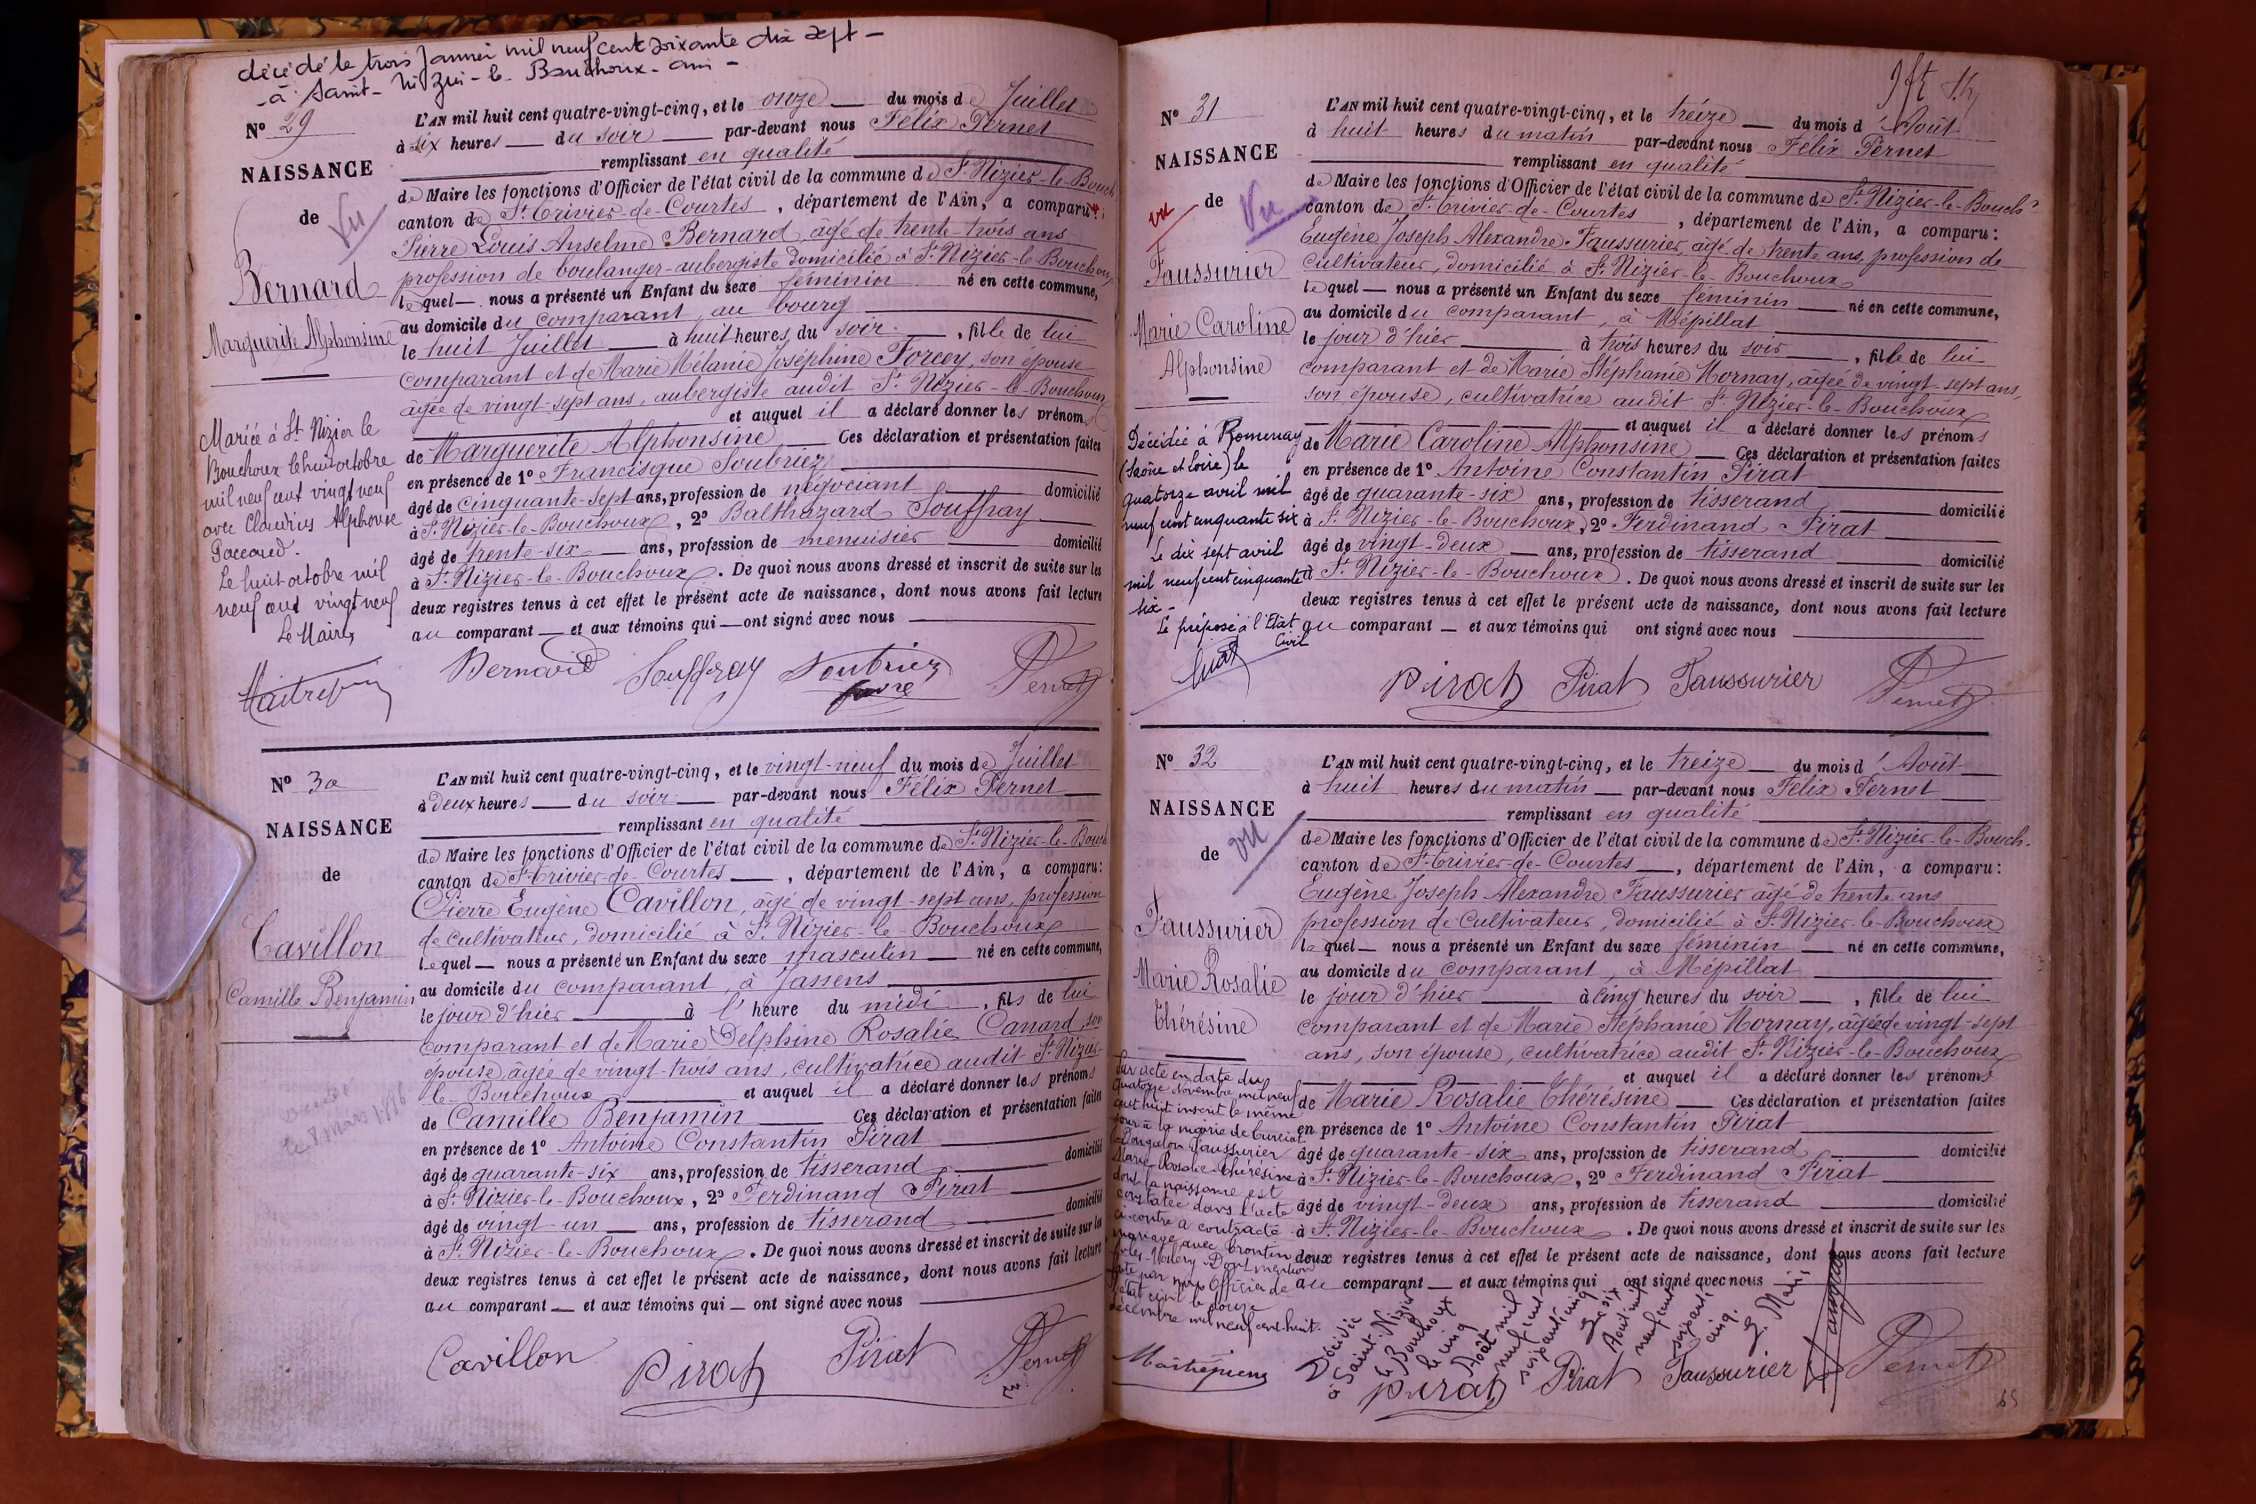 décédé le trois Janvier mil neuf cent soixante dix sept -
- à Saint-Nizier-le-Bouchoux - ain -
N° 29
NAISSANCE
de
Vu
Bernard
Marguerite Alphonsine
Mariée à St Nizier le
Bouchoux le huit octobre
mil neuf cent vingt neuf
avec Claudius Alphonse
Paccoud.
Le huit octobre mil
neuf cent vingt neuf
Le Maire,
L'AN mil huit cent quatre-vingt-cinq, et le onze du mois de Juillet
à six heures du soir par-devant nous Félix Pernet
remplissant en qualité
de Maire les fonctions d'Officier de l'état civil de la commune de St Nizier-le-Bouch
canton de St Trivier-de-Courtes, département de l'Ain, a comparu:
Pierre Louis Anselme Bernard, âgé de trente-trois ans
profession de boulanger-aubergiste domicilié à St Nizier-le-Bouchoux,
lequel nous a présenté un Enfant du sexe féminin né en cette commune,
au domicile du comparant, au bourg
le huit Juillet à huit heures du soir, fille de lui
comparant et de Marie Mélanie Joséphine Forcey, son épouse
âgée de vingt-sept ans, aubergiste audit St Nizier-le-Bouchoux
et auquel il a déclaré donner les prénoms
de Marguerite Alphonsine Ces déclaration et présentation faites
en présence de 1° Francisque Soubriez
âgé de cinquante-sept ans, profession de négociant domicilié
à St Nizier-le-Bouchoux, 2° Balthazard Souffray
âgé de trente-six ans, profession de menuisier domicilié
à St Nizier-le-Bouchoux. De quoi nous avons dressé et inscrit de suite sur les
deux registres tenus à cet effet le présent acte de naissance, dont nous avons fait lecture
au comparant et aux témoins qui ont signé avec nous
Bernard Souffray Soubriez Pernet
N° 30
NAISSANCE
de
Cavillon
Camille Benjamin
L'AN mil huit cent quatre-vingt-cinq, et le vingt-neuf du mois de Juillet
à deux heures du soir par-devant nous Félix Pernet
remplissant en qualité
de Maire les fonctions d'Officier de l'état civil de la commune de St Nizier-le-Bouch
canton de St Trivier-de-Courtes, département de l'Ain, a comparu:
Pierre Eugène Cavillon, âgé de vingt-sept ans, profession
de cultivateur, domicilié à St Nizier-le-Bouchoux
lequel nous a présenté un Enfant du sexe masculin né en cette commune,
au domicile du comparant, à Jassens
le jour d'hier à l'heure du midi, fils de lui
comparant et de Marie Delphine Rosalie Canard, son
épouse, âgée de vingt-trois ans, cultivatrice audit St Nizier-
le-Bouchoux et auquel il a déclaré donner les prénoms
de Camille Benjamin Ces déclaration et présentation faites
en présence de 1° Antoine Constantin Pirat
âgé de quarante-six ans, profession de tisserand domicilié
à St Nizier-le-Bouchoux, 2° Ferdinand Pirat
âgé de vingt-un ans, profession de tisserand domicilié
à St Nizier-le-Bouchoux. De quoi nous avons dressé et inscrit de suite sur les
deux registres tenus à cet effet le présent acte de naissance, dont nous avons fait lecture
au comparant et aux témoins qui ont signé avec nous
Cavillon Pirat Pirat Pernet
N° 31
NAISSANCE
de
vu Vu
Faussurier
Marie Caroline
Alphonsine
Décédée à Romenay
(Saône et Loire) le
quatorze avril mil
neuf cent cinquante six
Le dix sept avril
mil neuf cent cinquante
six -
Le préposé à l'Etat
Civil
L'AN mil huit cent quatre-vingt-cinq, et le treize du mois d'Août
à huit heures du matin par-devant nous Félix Pernet
remplissant en qualité
de Maire les fonctions d'Officier de l'état civil de la commune de St Nizier-le-Bouch
canton de St Trivier-de-Courtes, département de l'Ain, a comparu:
Eugène Joseph Alexandre Faussurier, âgé de trente ans, profession de
cultivateur, domicilié à St Nizier-le-Bouchoux
lequel nous a présenté un Enfant du sexe féminin né en cette commune,
au domicile du comparant, à Mépillat
le jour d'hier à trois heures du soir, fille de lui
comparant et de Marie Stéphanie Mornay, âgée de vingt-sept ans,
son épouse, cultivatrice audit St Nizier-le-Bouchoux
et auquel il a déclaré donner les prénoms
de Marie Caroline Alphonsine Ces déclaration et présentation faites
en présence de 1° Antoine Constantin Pirat
âgé de quarante-six ans, profession de tisserand domicilié
à St Nizier-le-Bouchoux, 2° Ferdinand Pirat
âgé de vingt-deux ans, profession de tisserand domicilié
à St Nizier-le-Bouchoux. De quoi nous avons dressé et inscrit de suite sur les
deux registres tenus à cet effet le présent acte de naissance, dont nous avons fait lecture
au comparant et aux témoins qui ont signé avec nous
Pirat Pirat Faussurier Pernet
N° 32
NAISSANCE
de
vu
Faussurier
Marie Rosalie
Thérésine
Par acte en date du
quatorze Novembre mil neuf
cent huit inscrit le même
jour à la mairie de Curciat
Dongalon Faussurier
Marie Rosalie Thérésine
dont la naissance est
constatée dans l'acte
ci-contre a contracté
mariage avec
Dont mention
faite par nous Officier de
l'état civil le douze
décembre mil neuf cent huit.
L'AN mil huit cent quatre-vingt-cinq, et le treize du mois d'Août
à huit heures du matin par-devant nous Félix Pernet
remplissant en qualité
de Maire les fonctions d'Officier de l'état civil de la commune de St Nizier-le-Bouch.
canton de St Trivier-de-Courtes, département de l'Ain, a comparu:
Eugène Joseph Alexandre Faussurier âgé de trente ans
profession de cultivateur, domicilié à St Nizier-le-Bouchoux
lequel nous a présenté un Enfant du sexe féminin né en cette commune,
au domicile du comparant, à Mépillat
le jour d'hier à cinq heures du soir, fille de lui
comparant et de Marie Stéphanie Mornay, âgée de vingt-sept
ans, son épouse, cultivatrice audit St Nizier-le-Bouchoux
et auquel il a déclaré donner les prénoms
de Marie Rosalie Thérésine Ces déclaration et présentation faites
en présence de 1° Antoine Constantin Pirat
âgé de quarante-six ans, profession de tisserand domicilié
à St Nizier-le-Bouchoux, 2° Ferdinand Pirat
âgé de vingt-deux ans, profession de tisserand domicilié
à St Nizier-le-Bouchoux. De quoi nous avons dressé et inscrit de suite sur les
deux registres tenus à cet effet le présent acte de naissance, dont nous avons fait lecture
au comparant et aux témoins qui ont signé avec nous
Décédée
à Saint-Nizier
le Bouchoux
le cinq
Août mil
neuf cent
soixante cinq
Le six
Août mil
neuf cent
soixante
cinq.
Le Maire
Pirat Pirat Faussurier Pernet